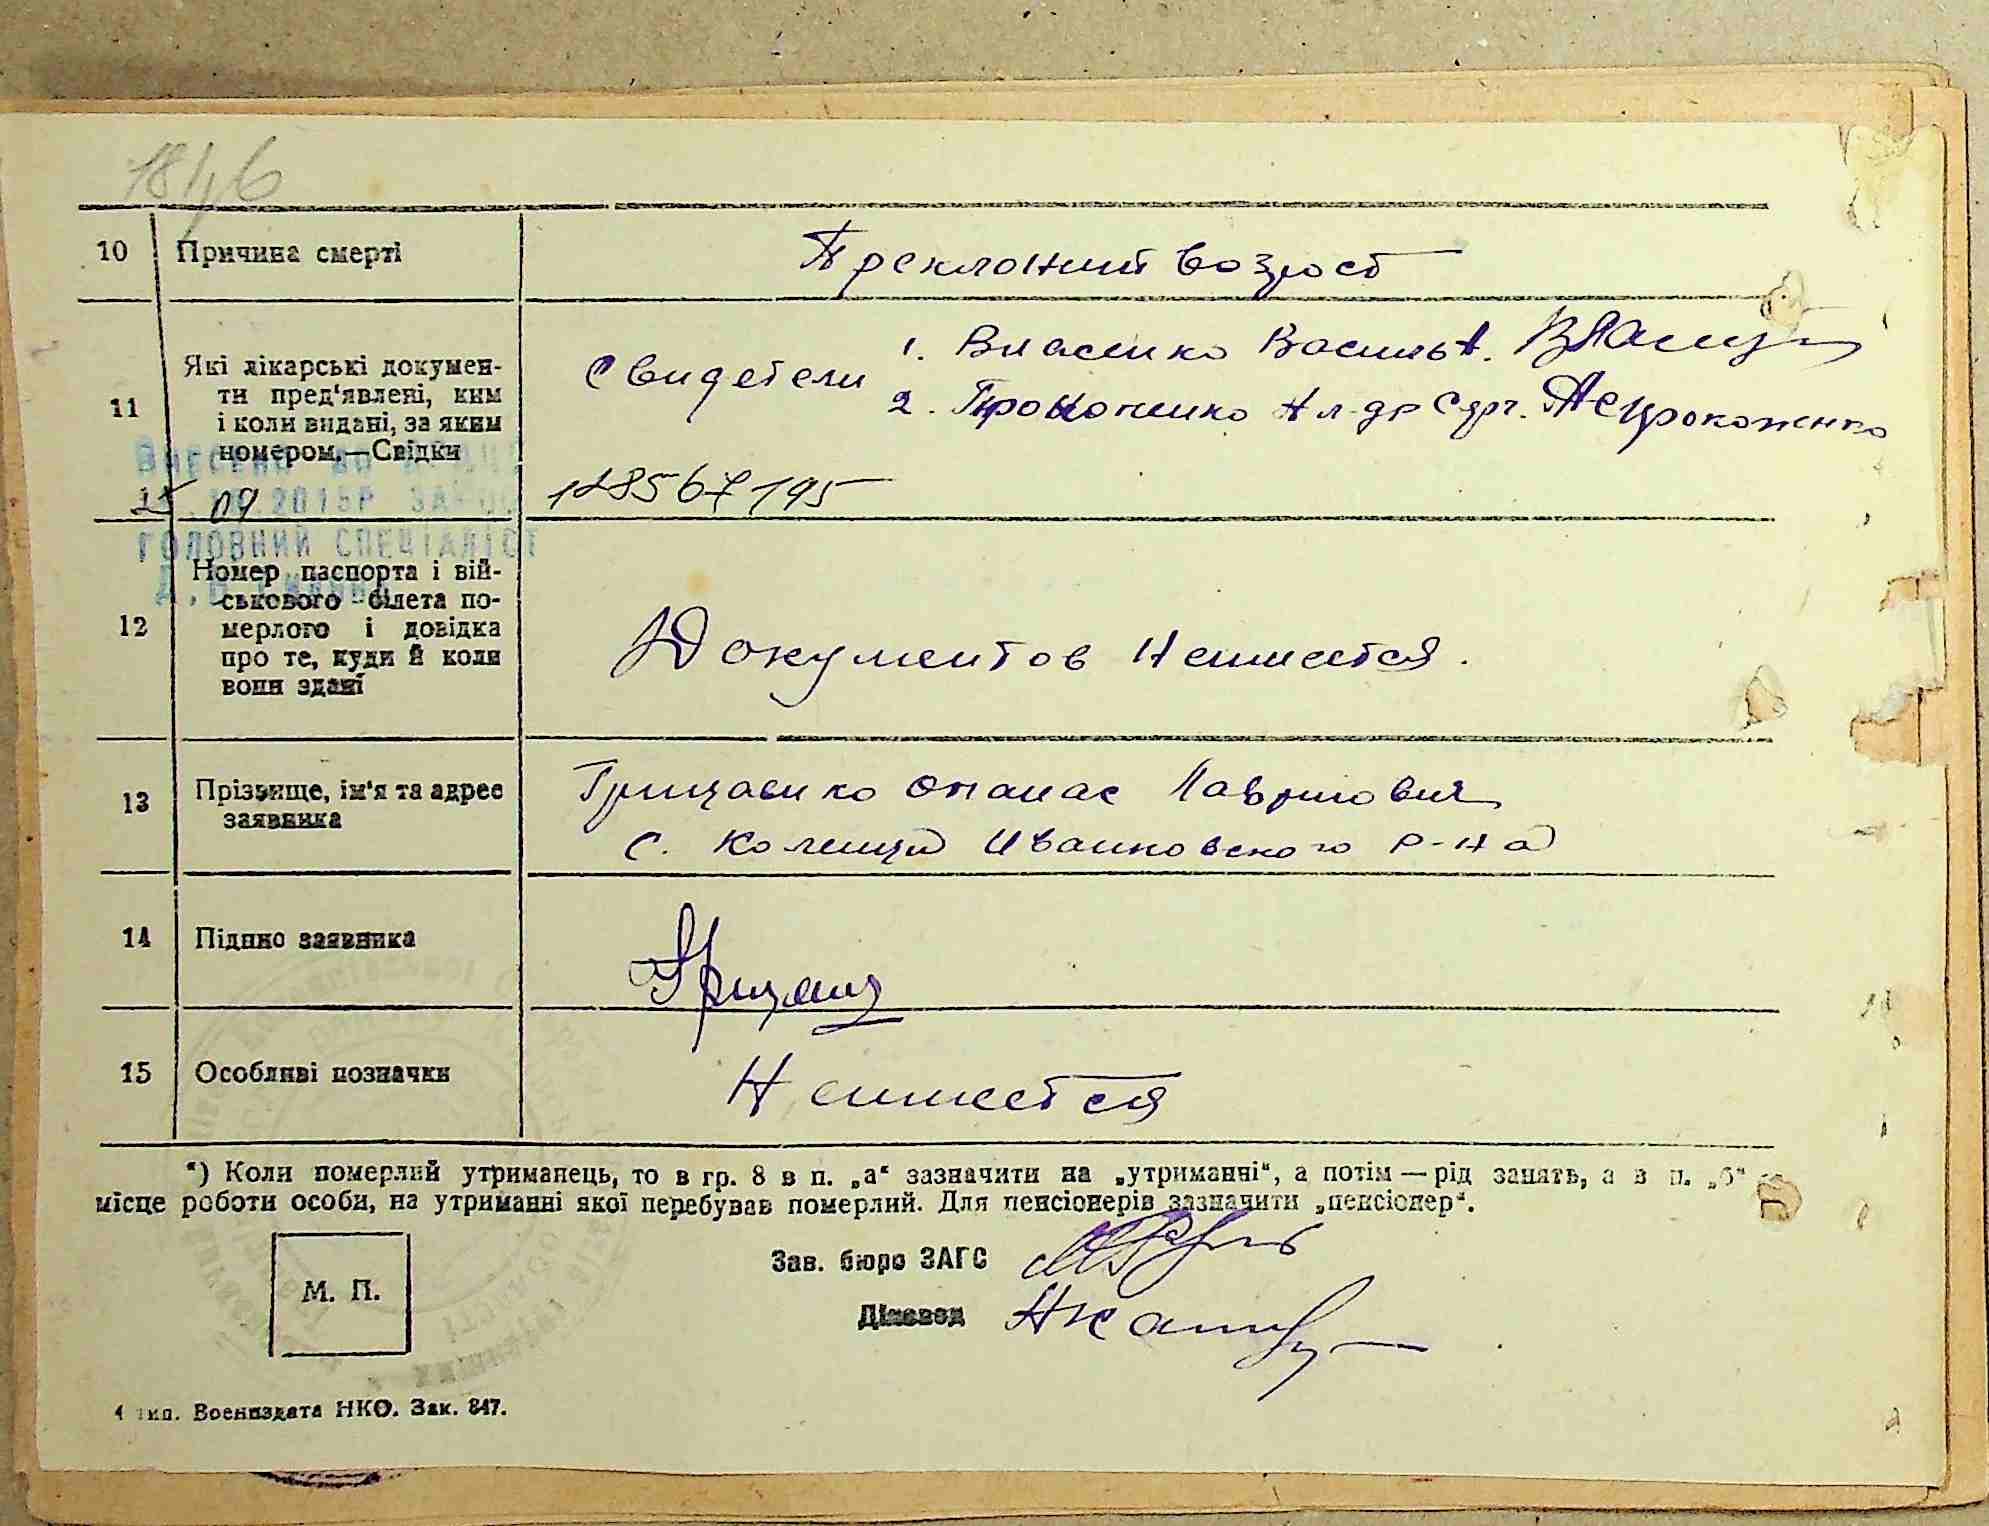 1846
10 Причина смерті Преклоний возрост
11 Які лікарські докумен-
ти пред'явлені, ким
і коли видані, за яким
номером.—Свідки
Свидетели 1. Власенко Василь А.
2. Прокопенко Ал-др Сдрг. Прокопенко
15 09 2015Р
128567195
ГОЛОВНИЙ СПЕЦІАЛІСТ
12 Номер паспорта і вій-
ськового білета по-
мерлого і довідка
про те, куди й коли
вони здані
Документов Неимеется.
13 Прізвище, ім'я та адрес
заявника
Грищенко Опанас Лавринович
с. Коленци Иванковского р-на
14 Підпис заявника
15 Особливі позначки Неимеется
*) Коли померлий утриманець, то в гр. 8 в п. „а“ зазначити на „утриманні“, а потім — рід занять, а в п. „б“
місце роботи особи, на утриманні якої перебував померлий. Для пенсіонерів зазначити „пенсіонер“.
М. П.
Зав. бюро ЗАГС
Діловод
4 тип. Воениздата НКО. Зак. 847.